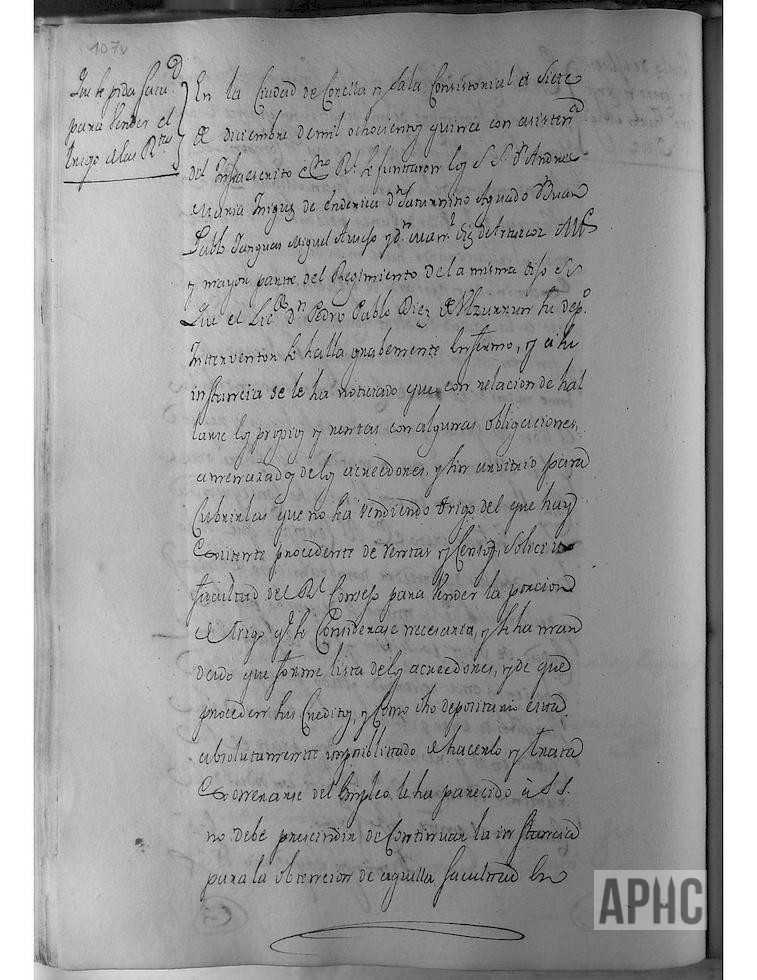 107v
Que se pida facu.d
para vender el
trigo de las R.tas
En la Ciudad de Corella y Sala Consistorial a siete
de diciembre de mil ochocientos quince con asisten.a
del Infraescrito Ess.no R.l se juntaron los S.S. D.n Andres
Maria Iñiguez de D.n Saturnino Aguado D.n Juan
Pablo Miguel y D.n de
y mayor parte del Regimiento de la misma dijo S.S.
Que el Lic.do D.n Pedro Pablo Diez de Ulzurrun su dep.o
Interventor se halla grabemente enfermo, y a su
instancia se le ha noticiado que con relacion de hal
larse los propios y rentas con algunas obligaciones,
atrrazados de los acreedores, y sin arvitrio para
Cubrirlas que no ha vendiendo trigo del que hay
Existente procedente de rentas y Censos, solicito
facultad del R.l Consejo para vender la porcion
de trigo q.e se Considerase necesaria, y se ha man
dado que forme lista de los acreedores, y de que
proceden sus Creditos, y Como dho depositario esta
absolutamente imposiblitado de hacerlo y trata
Exonerarse del Empleo, le ha parecido à S.S.
no debe prescindir de Continuar la instancia
para la obtencion de aquella facultad En
APHC